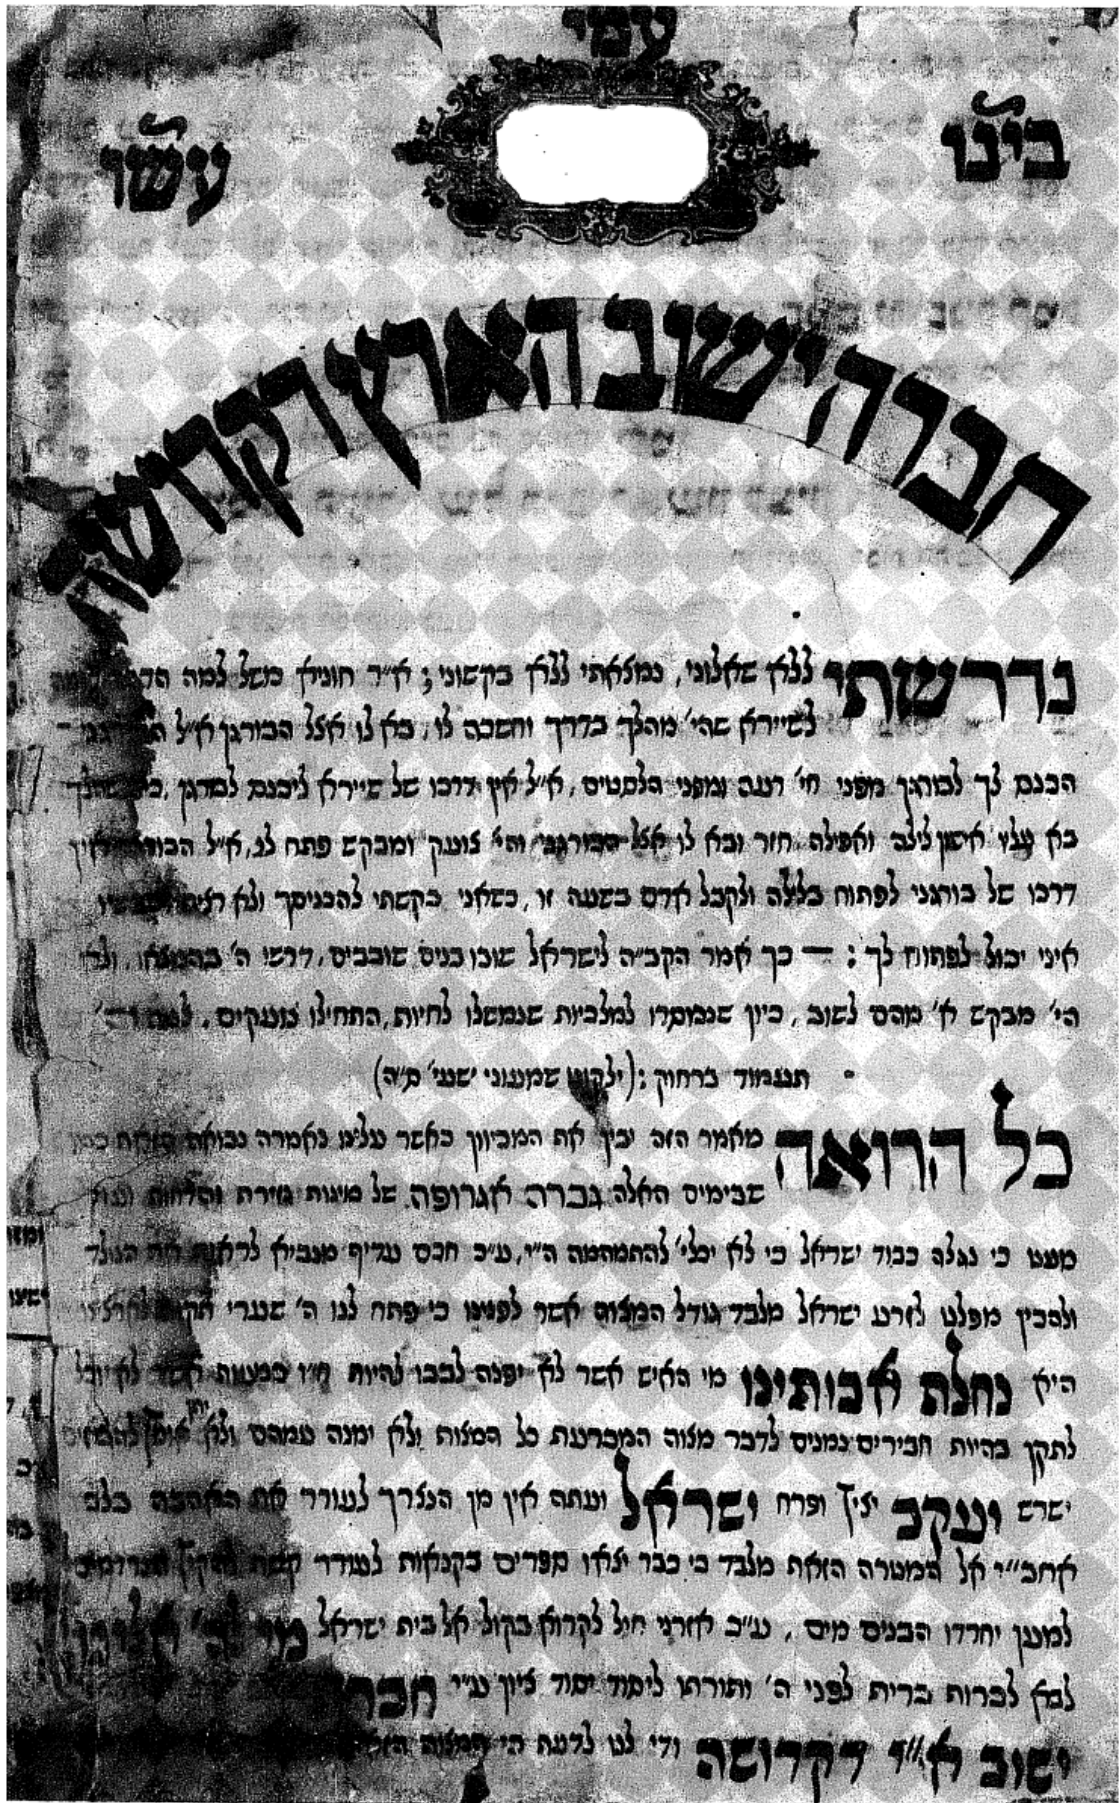 עמי
בינו
עשו
חברה ישוב הארץ דקדושה
נדרשתי ללא שאלוני, נמצאתי ללא בקשוני; א״ר חוניא משל למה הדבר
לשיירא שהי׳ מהלך בדרך וחשכה לו, בא לו אצל הבורגן א״ל
הכנס לך לבורגן מפני חי׳ רעה ומפני הלסטים, א״ל אין דרכו של שיירא ליכנס לבורגן,
בא עליו אישון לילה ואפילה, חזר ובא לו אצל הבורגני והי׳ צועק ומבקש פתח לנו, א״ל
דרכו של בורגני לפתוח בלילה ולקבל אדם בשעה זו, כשאני בקשתי להכניסך ולא
איני יכול לפתוח לך: — כך אמר הקב״ה לישראל שובו בנים שובבים, דרשו ה׳ בהמצאו, ולא
הי׳ מבקש א׳ מהם לשוב, כיון שנמסרו למלכיות שנמשלו לחיות, התחילו צועקים, למה ה׳
תעמוד ברחוק: (ילקוט שמעוני ישעי׳ ס״ה)
כל הרואה מאמר הזה יבין את המכוון כאשר עלינו נאמרה נבואה הזאת
שבימים האלה גברה אגרופה של מינות גזירת
מעט כי נגלה כבוד ישראל כי לא יכלי׳ להתמהמה ה״י, ע״כ חכם עדיף מנביא לראות את הנולד
ולהכין מפלט לזרע ישראל מלבד גודל המצוה אשר לפנינו כי פתח לנו ה׳ שערי
היא נחלת אבותינו מי האיש אשר לא יפנה לבבו להיות
לתקן בהיות חבירים נמנים לדבר מצוה המכרעת כל המצות ולא ימנה עמהם ולא
ישרש יעקב יציץ ופרח ישראל ועתה אין מן הצורך לעורר את האהבה בלב
אחב״י אל המטרה הזאת מלבד כי כבר יצאו ספרים בקנאות לעורר
למען יחרדו הבנים מים, ע״כ אזרתי חיל לקרוא בקול אל בית ישראל מי לה׳ אלינו
לבא לכרות ברית לפני ה׳ ותורתו ליסוד יסוד ציון ע״י חברה
ישוב א״י דקדושה ודי לנו לדעת כי המצוה